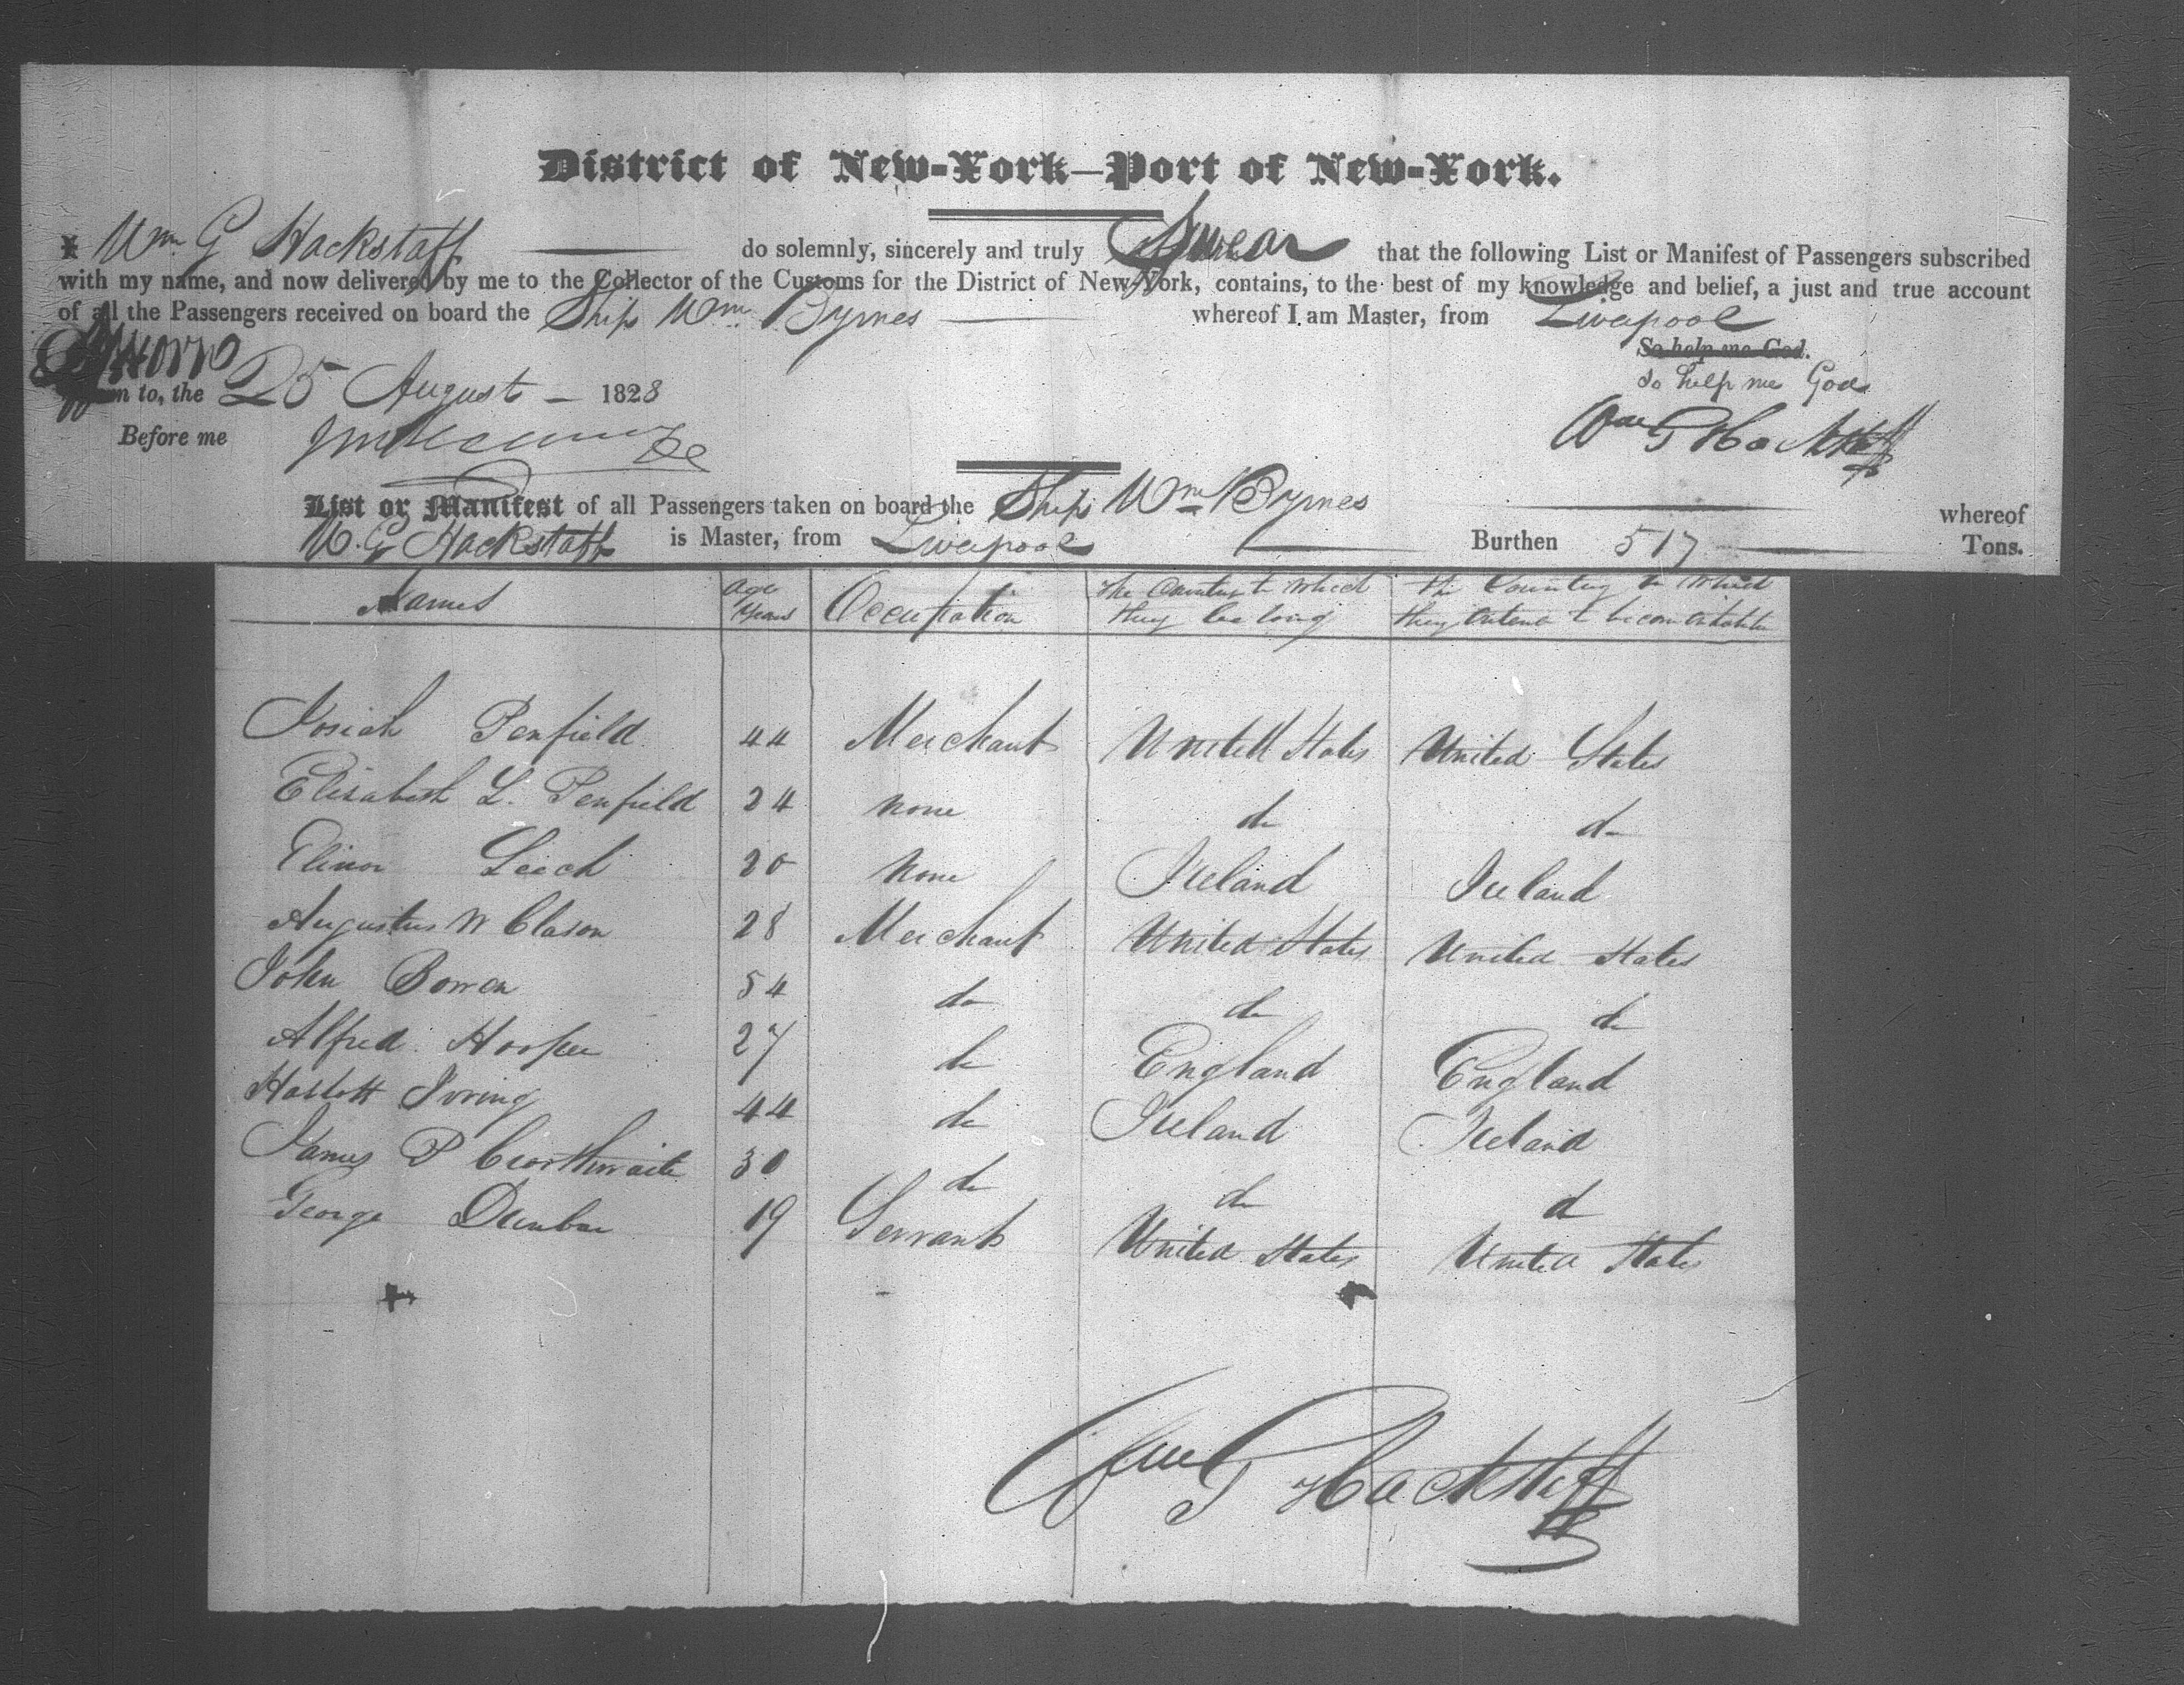 District of New-York—Port of New-York.
I Wm G Hackstaff do solemnly, sincerely and truly Swear that the following List or Manifest of Passengers subscribed
with my name, and now delivered by me to the Collector of the Customs for the District of New-York, contains, to the best of my knowledge and belief, a just and true account
of all the Passengers received on board the Ship Wm Byrnes whereof I am Master, from Liverpool
So help me God.
Sworn to, the 25 August 1828
So help me God
Before me
Wm G Hackstaff
List or Manifest of all Passengers taken on board the Ship Wm Byrnes whereof
W. G Hackstaff is Master, from Liverpool Burthen 517 Tons.
Names Age Years Occupation The Country to which they belong The Country to which they intend to become inhabitants
Josiah Penfield 44 Merchant United States United States
Elisabeth L. Penfield 24 none do do
Elinor Leech 20 none Ireland Ireland
Augustus W Clason 28 Merchant United States United States
John Bowen 54 do do do
Alfred Hooper 27 do England England
Haslett Irving 44 do Ireland Ireland
James P Crosthwaite 30 do do d
George Dunbar 19 Servant United States United States
Wm G Hackstaff